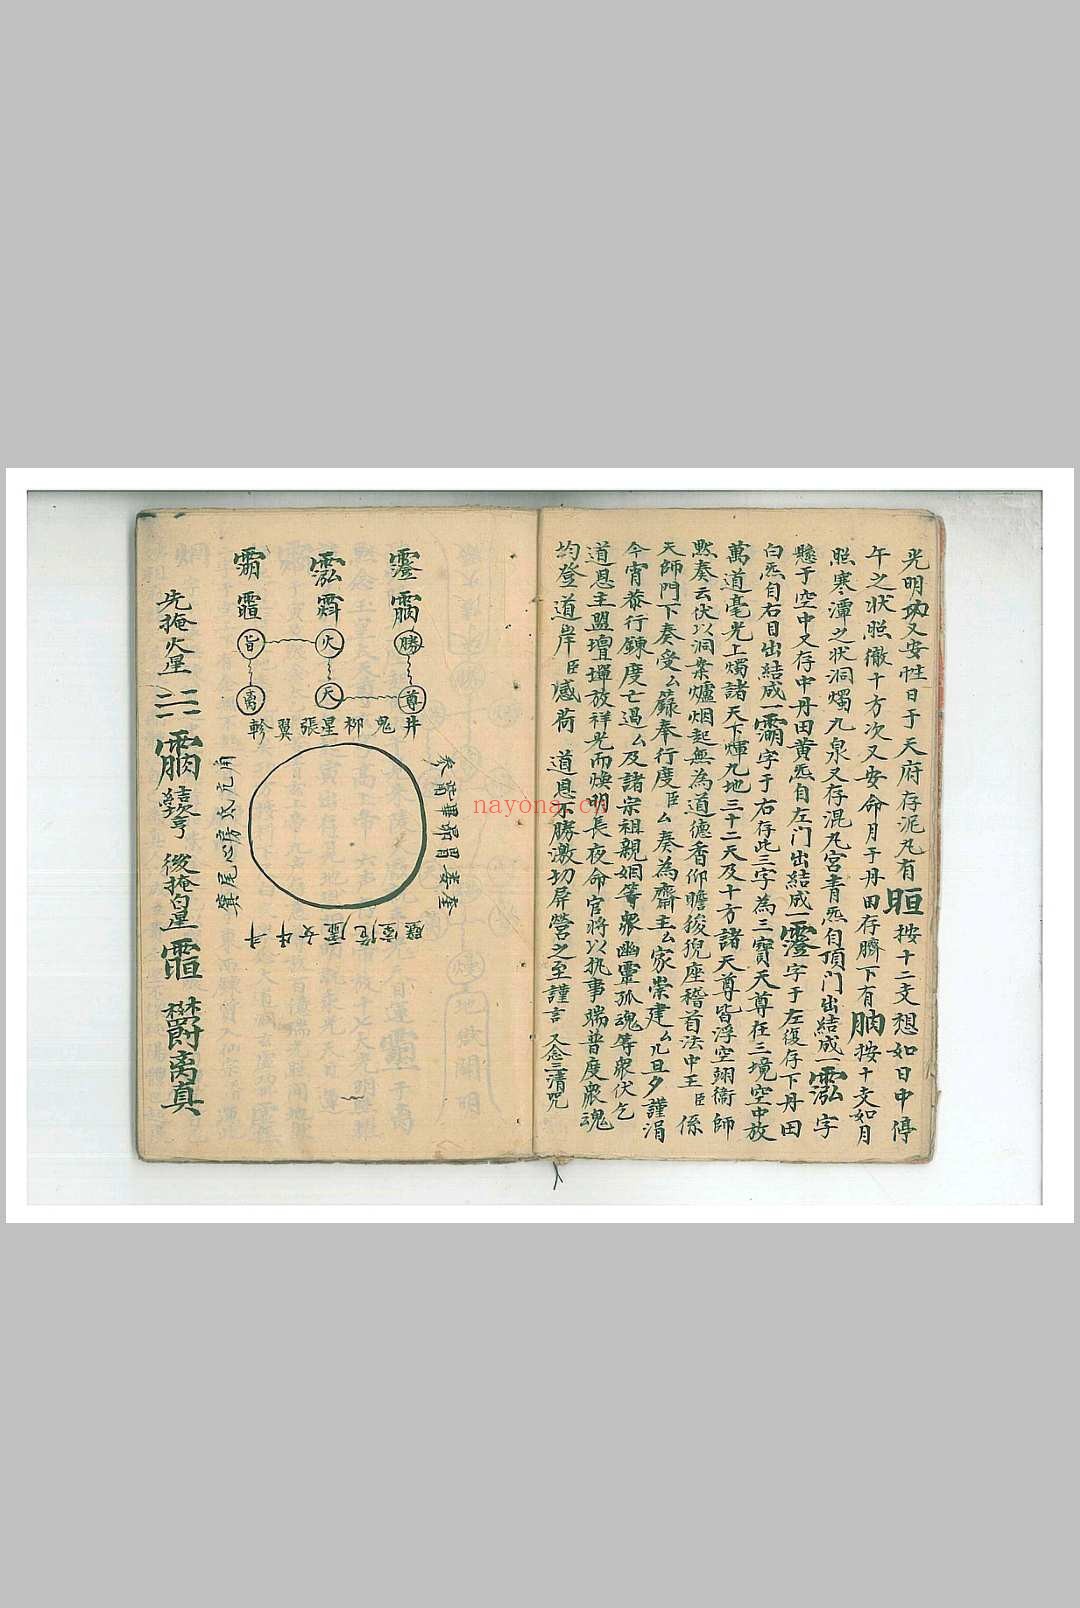 光明又安性日于天府存泥丸有𣆤按十二支想如日中停
午之状照徹十方次又安命月于丹田存臍下有按十支如月
照寒潭之状洞燭九泉又存混丸宮青炁自頂門出結成一霐字
懸于空中又存中丹田黄炁自左门出結成一霪字于左復存下丹田
白炁自右目出結成一霸字于右存此三字為三寶天尊在三境空中放
萬道毫光上燭諸天下煇九地三十二天及十方諸天尊皆浮空翊衛師
默奏云伏以洞案爐烟起無為道德香仰瞻猊座稽首法中王臣係
天師門下奏受厶籙奉行度臣厶奏為齋主厶家崇建厶几旦夕謹涓
今宵恭行鍊度亡過厶及諸宗祖親姻等衆幽靈孤魂等衆伏乞
道恩主盟壇墠放祥光而煥明長夜命官將以执事端普度衆魂
均登道岸臣感荷 道恩不勝激切屏營之至謹言 又念三清咒
勝
尊
火
天
旨
离
井鬼柳星張翼軫
参觜畢昴胃婁奎
壁室危虚女牛斗
角亢氐房心尾箕
先掩火星
後掩皇
欝离真
nayona.cn